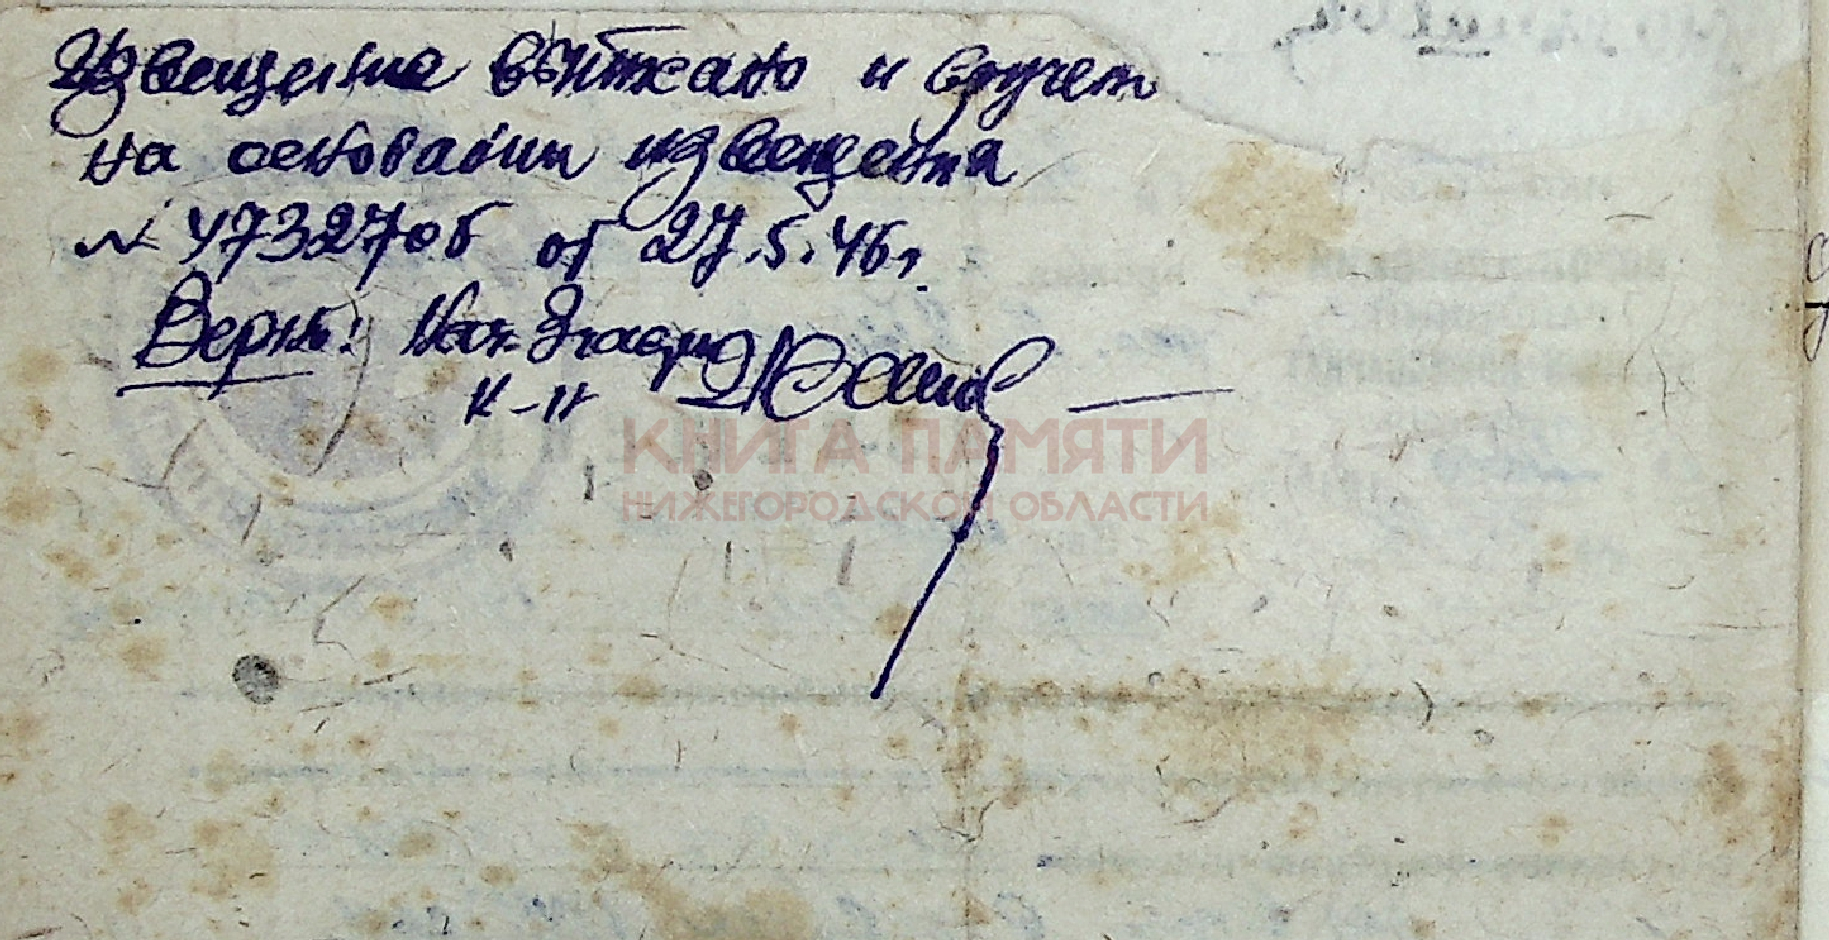 Извещение выписано и вручен
на основании извещения
№ 4732706 от 27.5.46 г.
Верно: Нач. 3 части
к-н
КНИГА ПАМЯТИ
НИЖЕГОРОДСКОЙ ОБЛАСТИ